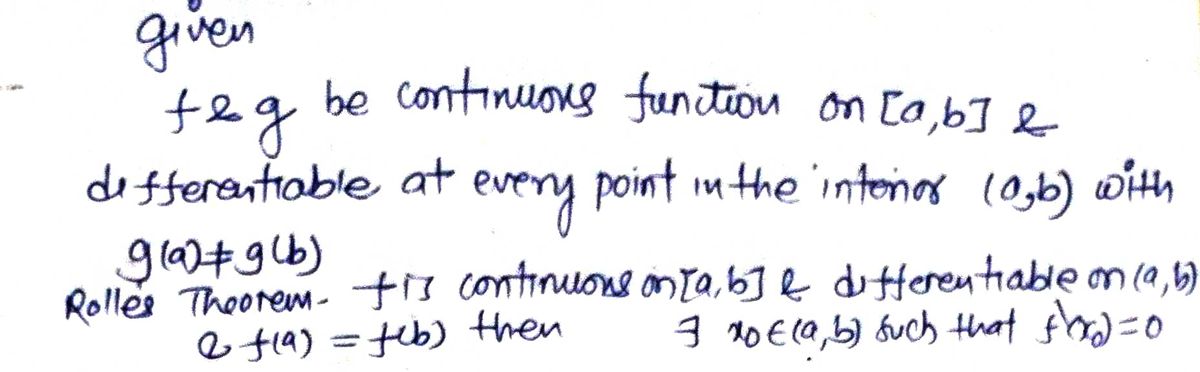 given
f & g be continuous function on [a,b] &
differentiable at every point in the interior (a,b) with
g(a)≠g(b)
Rolle's Theorem - f is continuous on [a,b] & differentiable on (a,b)
& f(a) = f(b) then ∃ x₀ ∈ (a,b) such that f'(x₀)=0